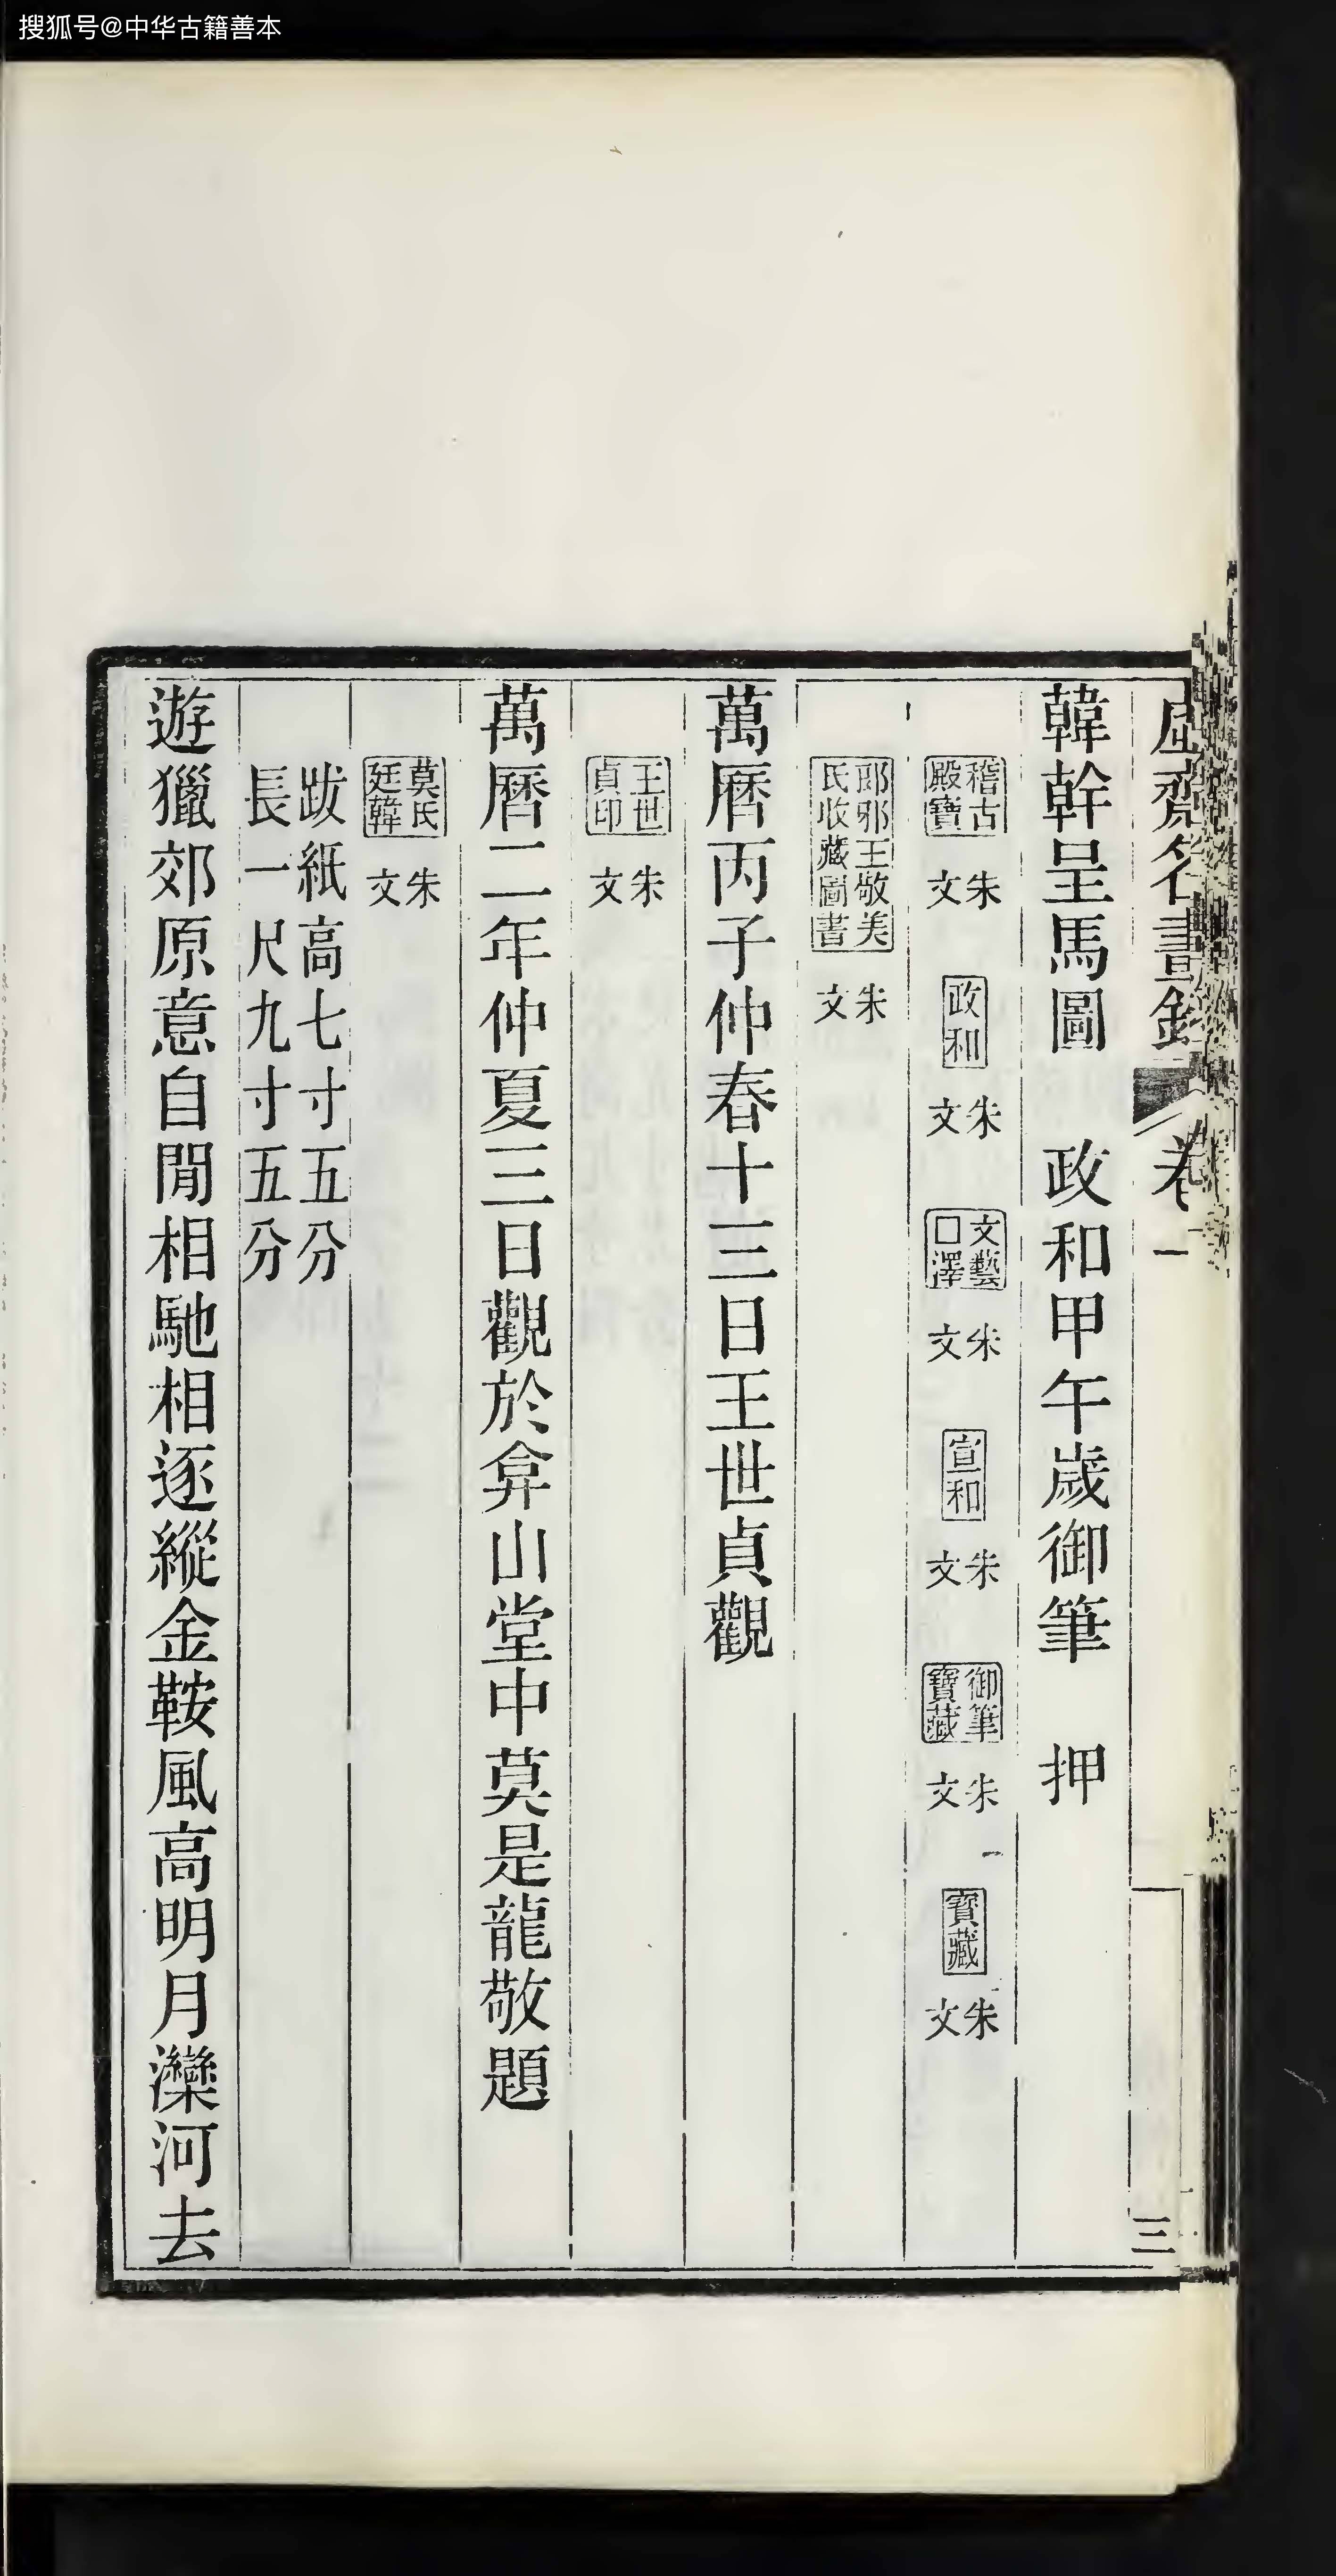 搜狐号@中华古籍善本
齋名畫錄 卷一 三
韓幹呈馬圖 政和甲午歲御筆 押
稽古殿寶 朱文 政和 朱文 文藝□澤 朱文 宣和 朱文 御筆寶藏 朱文 寶藏 朱文
郎邪王敬美氏收藏圖書 朱文
萬曆丙子仲春十三日王世貞觀
王世貞印 朱文
萬曆二年仲夏三日觀於弇山堂中莫是龍敬題
莫氏廷韓 朱文
跋紙高七寸五分
長一尺九寸五分
遊獵郊原意自閒相馳相逐縱金鞍風高明月灤河去